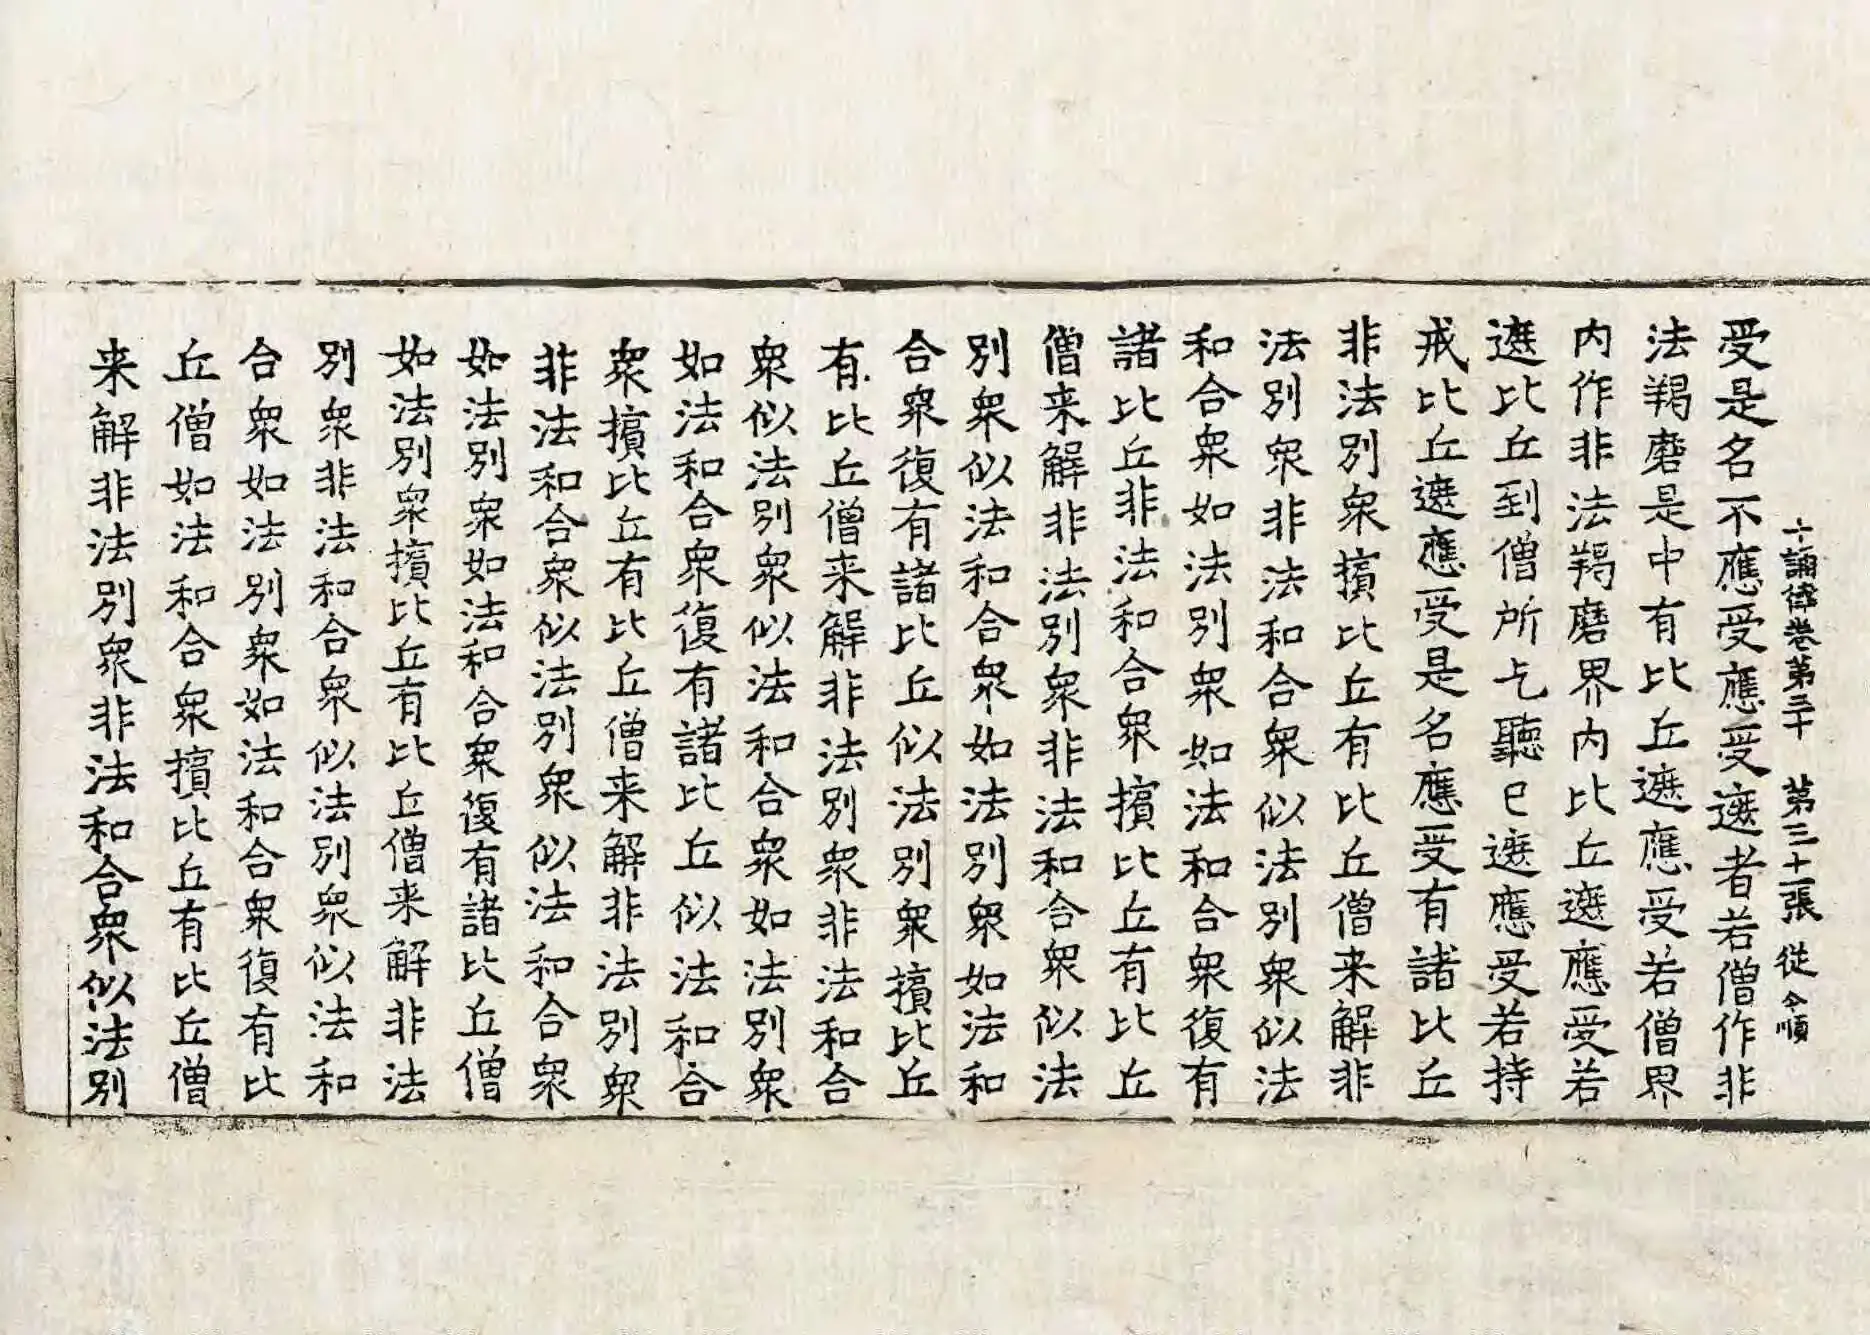 十誦律卷第三十 第三十一張 従
受是名不應受應受遮者若僧作非
法羯磨是中有比丘遮應受若僧界
内作非法羯磨界内比丘遮應受若
遮比丘到僧所乞聽已遮應受若持
戒比丘遮應受是名應受有諸比丘
非法別衆擯比丘有比丘僧来解非
法別衆非法和合衆似法別衆似法
和合衆如法別衆如法和合衆復有
諸比丘非法和合衆擯比丘有比丘
僧来解非法別衆非法和合衆似法
別衆似法和合衆如法別衆如法和
合衆復有諸比丘似法別衆擯比丘
有比丘僧来解非法別衆非法和合
衆似法別衆似法和合衆如法別衆
如法和合衆復有諸比丘似法和合
衆擯比丘有比丘僧来解非法別衆
非法和合衆似法別衆似法和合衆
如法別衆如法和合衆復有諸比丘僧
如法別衆擯比丘有比丘僧来解非法
別衆非法和合衆似法別衆似法和
合衆如法別衆如法和合衆復有比
丘僧如法和合衆擯比丘有比丘僧
来解非法別衆非法和合衆似法別